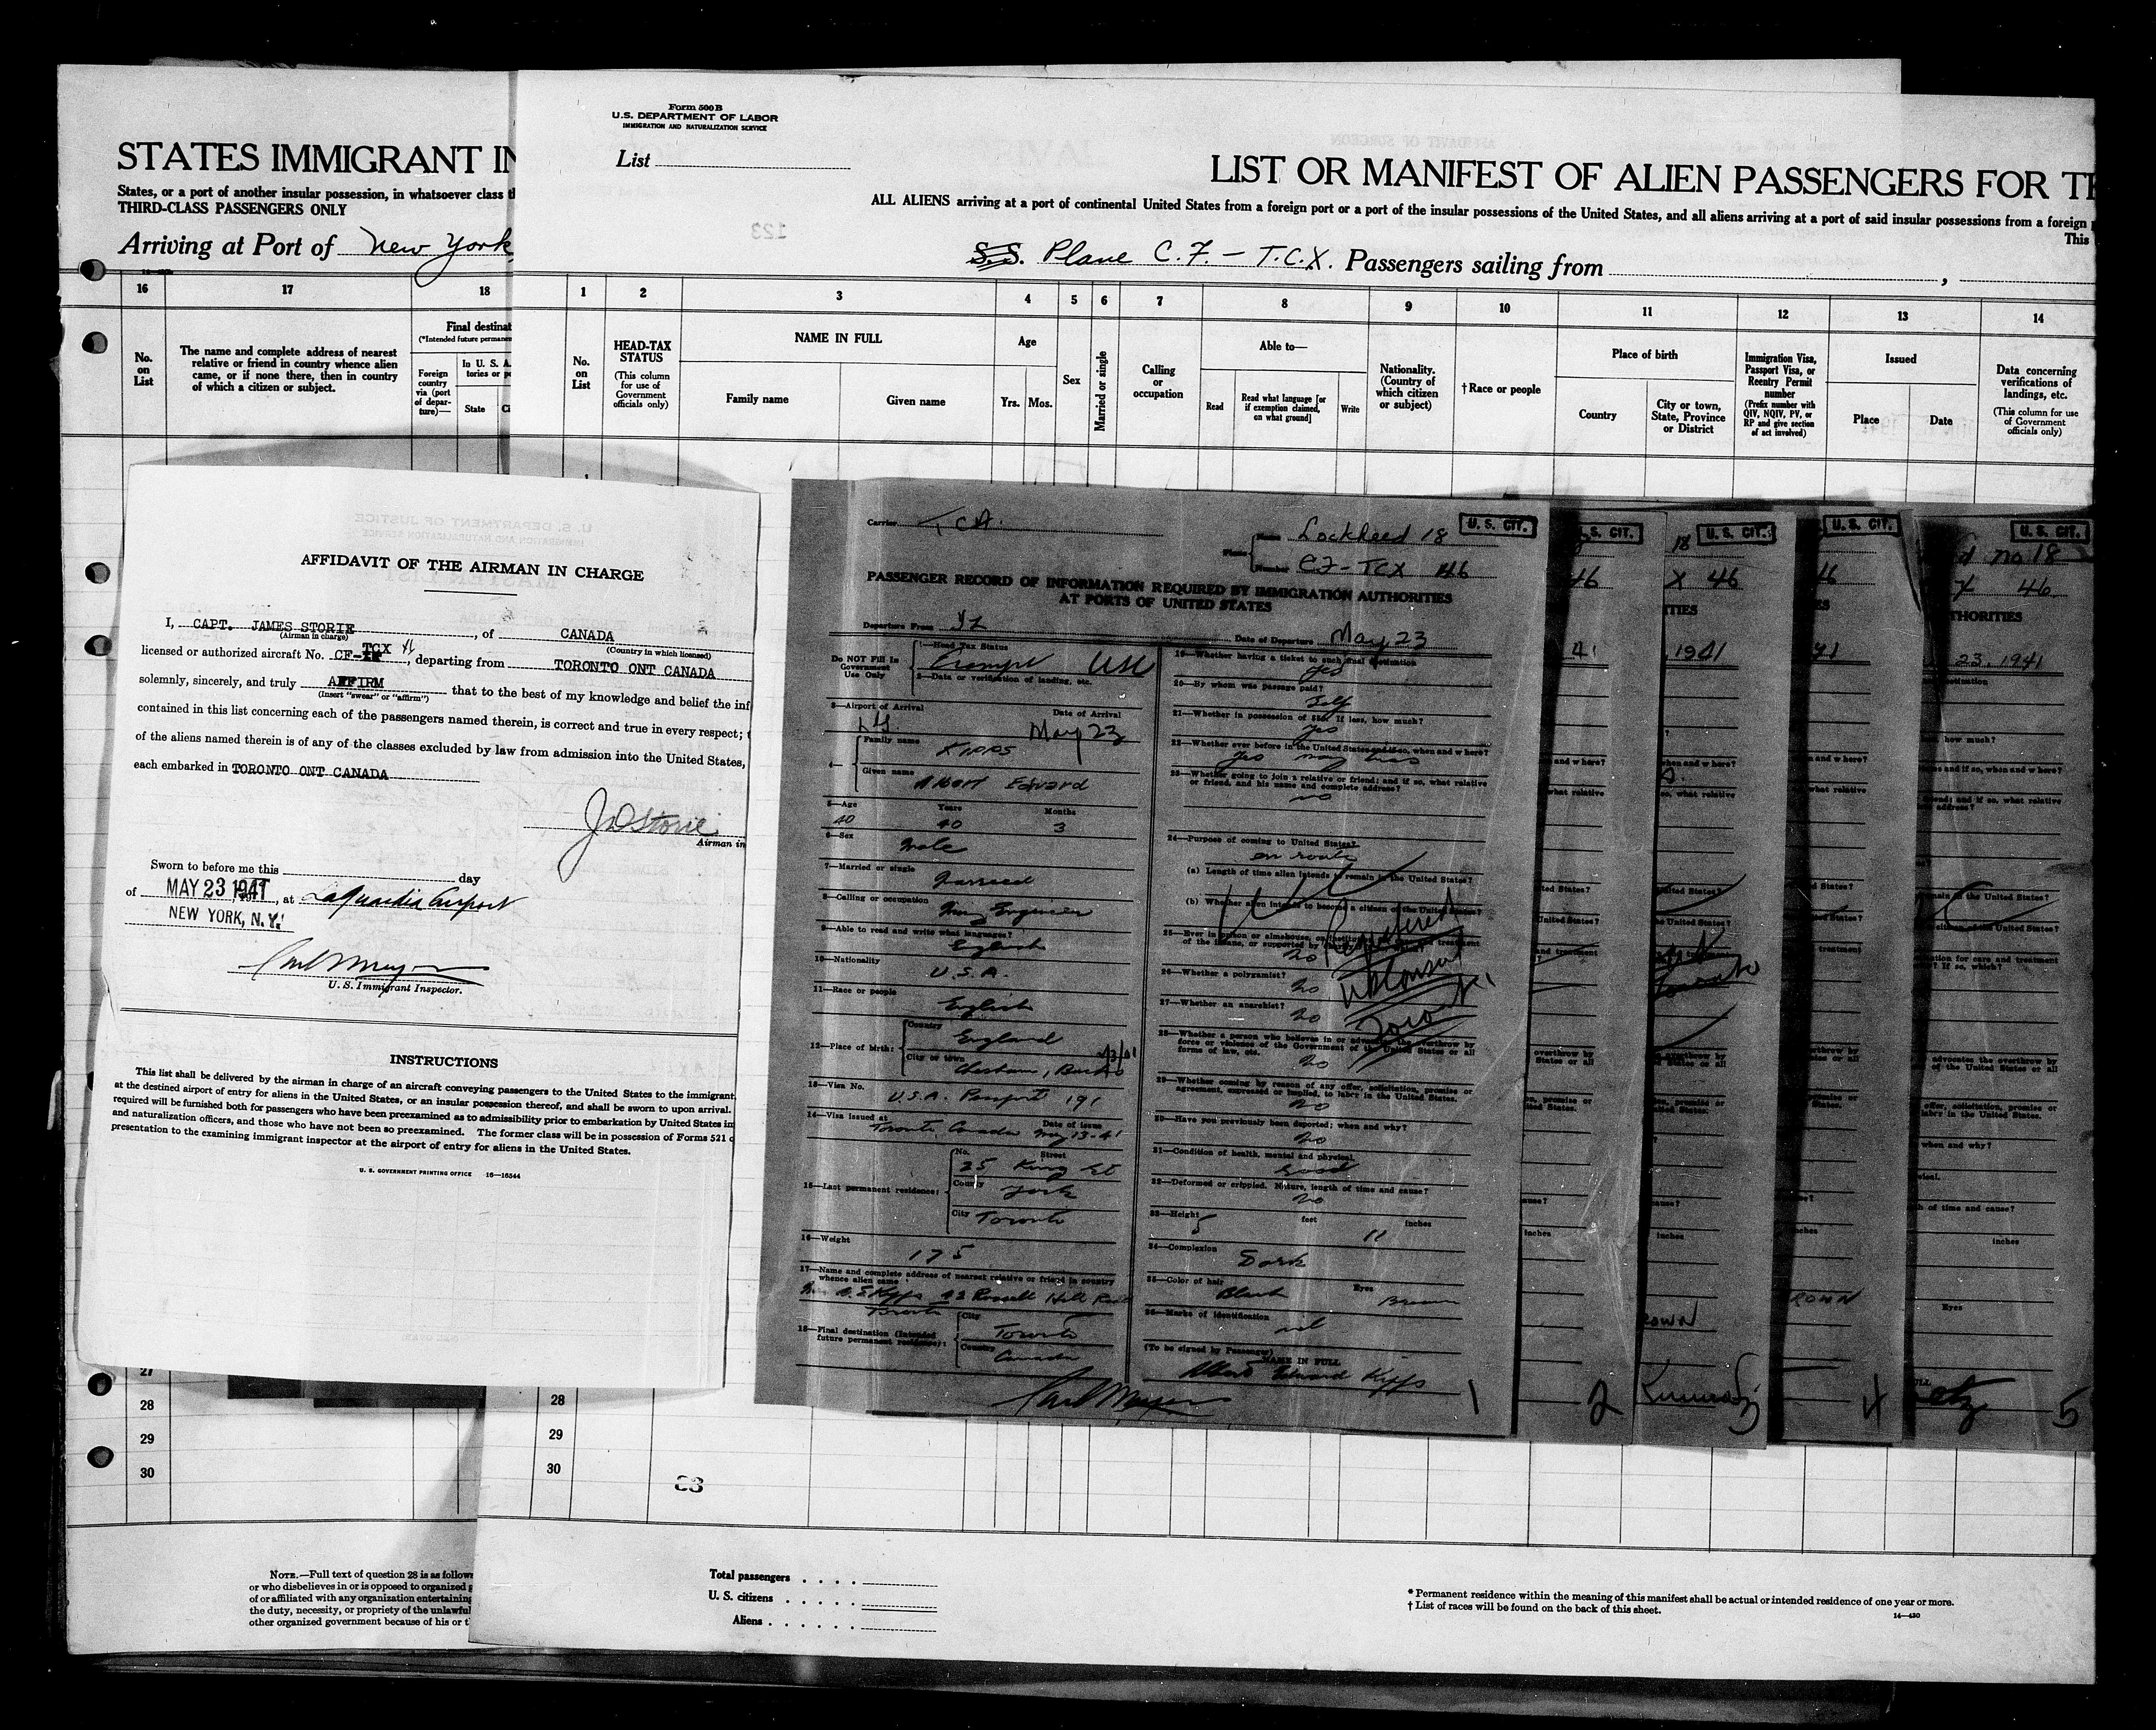 STATES IMMIGRANT IN
States, or a port of another insular possession, in whatsoever class th
THIRD-CLASS PASSENGERS ONLY
Arriving at Port of New York
16
17
18
No. on List
The name and complete address of nearest
relative or friend in country whence alien
came, or if none there, then in country
of which a citizen or subject.
Final destinat
(*Intended future permane
Foreign
country
via (port
of depar-
ture)—
In U. S. A.
tories or p
State
Form 500 B
U.S. DEPARTMENT OF LABOR
IMMIGRATION AND NATURALIZATION SERVICE
List
LIST OR MANIFEST OF ALIEN PASSENGERS FOR TH
ALL ALIENS arriving at a port of continental United States from a foreign port or a port of the insular possessions of the United States, and all aliens arriving at a port of said insular possessions from a foreign
This
123
S.S. Plane C.F.-T.C.X. Passengers sailing from
1 2 3 4 5 6 7 8 9 10 11 12 13 14
No. on List
HEAD-TAX
STATUS
(This column
for use of
Government
officials only)
NAME IN FULL
Family name
Given name
Age
Yrs. Mos.
Sex
Married or single
Calling
or
occupation
Able to—
Read
Read what language [or
if exemption claimed,
on what ground]
Write
Nationality.
(Country of
which citizen
or subject)
† Race or people
Place of birth
Country
City or town,
State, Province
or District
Immigration Visa,
Passport Visa, or
Reentry Permit
number
(Prefix number with
QIV, NQIV, PV, or
RP and give section
of act involved)
Issued
Place
Date
Data concerning
verifications of
landings, etc.
(This column for use
of Government
officials only)
AFFIDAVIT OF THE AIRMAN IN CHARGE
I, CAPT. JAMES STORIE, of CANADA
(Airman in charge) (Country in which licensed)
licensed or authorized aircraft No. CF-TCX, departing from TORONTO ONT CANADA
solemnly, sincerely, and truly AFFIRM that to the best of my knowledge and belief the inf
(Insert "swear" or "affirm")
contained in this list concerning each of the passengers named therein, is correct and true in every respect;
of the aliens named therein is of any of the classes excluded by law from admission into the United States,
each embarked in TORONTO ONT CANADA
J D Storie
Airman in
Sworn to before me this day
of MAY 23 1941, at LaGuardia Airport
NEW YORK, N.Y.
Carl Meyer
U. S. Immigrant Inspector.
INSTRUCTIONS
This list shall be delivered by the airman in charge of an aircraft conveying passengers to the United States to the immigrant
at the destined airport of entry for aliens in the United States, or an insular possession thereof, and shall be sworn to upon arrival.
required will be furnished both for passengers who have been preexamined as to admissibility prior to embarkation by United States im
and naturalization officers, and those who have not been so preexamined. The former class will be in possession of Forms 521
presentation to the examining immigrant inspector at the airport of entry for aliens in the United States.
U. S. GOVERNMENT PRINTING OFFICE 16—16544
Carrier T C A.
Plane
Name Lockheed 18
Number CF-TCX 146
U. S. CIT.
PASSENGER RECORD OF INFORMATION REQUIRED BY IMMIGRATION AUTHORITIES
AT PORTS OF UNITED STATES
Departure From YZ Date of Departure May 23
Do NOT Fill In
Government
Use Only
1—Head Tax Status
Exempt USC
2—Data or verification of landing, etc.
3—Airport of Arrival Date of Arrival
LG. May 23
4—
Family name
KIPPS
Given name
Albert Edward
5—Age Years Months
40 40 3
6—Sex
Male
7—Married or single
Married
8—Calling or occupation
Engineer
9—Able to read and write what languages?
English
10—Nationality
U.S.A.
11—Race or people
English
12—Place of birth:
Country
England
City or town
Chesham, Bucks
13—Visa No.
U.S.A. Passport 191
14—Visa issued at Date of issue
Toronto, Canada May 13-41
15—Last permanent residence:
No. Street
25 King St
County
York
City
Toronto
16—Weight
175
17—Name and complete address of nearest relative or friend in country
whence alien came
A E Kipps 42 Russell Hill Road
Toronto
18—Final destination (Intended
future permanent residence):
City
Toronto
Country
Canada
Carl Meyer
19—Whether having a ticket to such final destination
Yes
20—By whom was passage paid?
Self
21—Whether in possession of $50. If less, how much?
Yes
22—Whether ever before in the United States and if so, when and where?
Yes many times
23—Whether going to join a relative or friend; and if so, what relative
or friend, and his name and complete address?
no
24—Purpose of coming to United States?
en route
(a) Length of time alien intends to remain in the United States?
(b) Whether alien intends to become a citizen of the United States?
25—Ever in prison or almshouse, or institution for care and treatment
of the insane, or supported by
No
Registered
US Consul
Toronto
26—Whether a polygamist?
No
27—Whether an anarchist?
No
28—Whether a person who believes in or advocates the overthrow by
force or violence of the Government of the United States or all
forms of law, etc.
No
29—Whether coming by reason of any offer, solicitation, promise or
agreement, expressed or implied, to labor in the United States.
No
30—Have you previously been deported; when and why?
No
31—Condition of health, mental and physical.
Good
32—Deformed or crippled. Nature, length of time and cause?
No
33—Height feet inches
5 11
34—Complexion
Dark
35—Color of hair Eyes
Black Brown
36—Marks of identification
nil
(To be signed by Passenger)
NAME IN FULL
Albert Edward Kipps
1
U. S. CIT.
46
41
2
18
U. S. CIT.
X 46
1941
OWN
3
U. S. CIT.
46
41
ROWN
4
U. S. CIT.
d no 18
X 46
THORITIES
23. 1941
Eyes
5
27
28
29
30
28
29
30
83
NOTE.—Full text of question 28 is as follow
or who disbelieves in or is opposed to organized g
of or affiliated with any organization entertaining
the duty, necessity, or propriety of the unlawful
other organized government because of his or t
Total passengers . . . .
U. S. citizens . . . . .
Aliens . . . . . .
* Permanent residence within the meaning of this manifest shall be actual or intended residence of one year or more.
† List of races will be found on the back of this sheet.
14—430